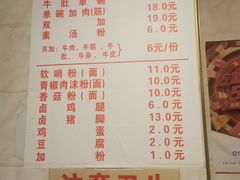 牛肚单碗 18.0元
单碗加肉(筋) 19.0元
双加
素汤粉 6.0元
另加:牛肉、牛筋、牛肚、牛杂、牛皮 6元/份
软哨粉(面) 11.0元
青椒肉沫粉(面) 10.0元
香菇粉(面) 10.0元
卤鸡腿 6.0元
卤猪脚 13.0元
卤鸡蛋 2.0元
豆腐 2.0元
加粉 1.0元